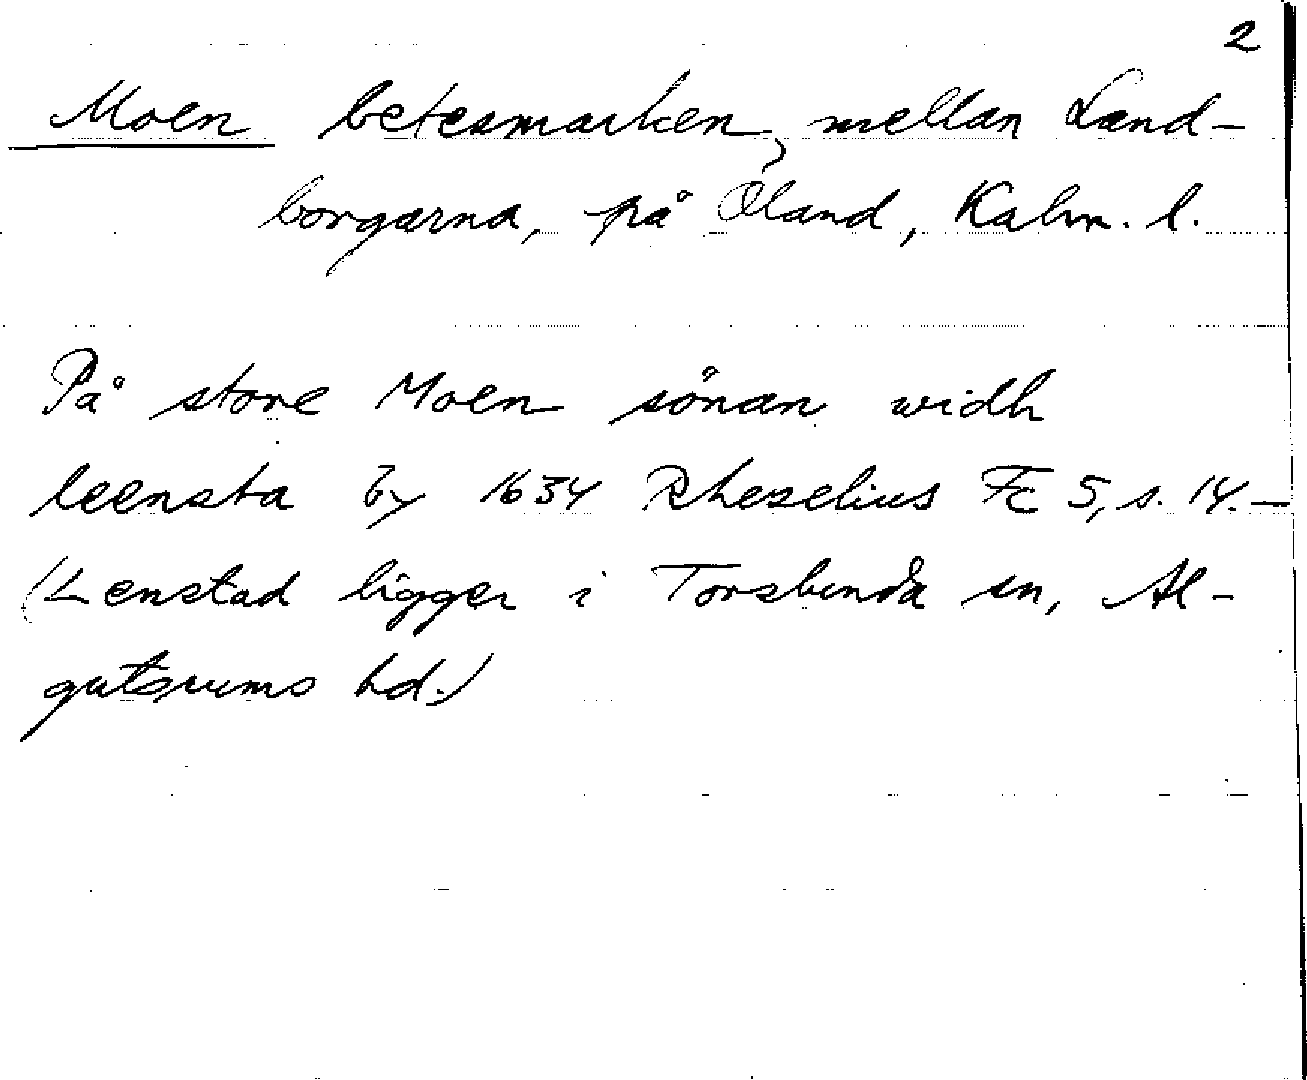 2
Moen betesmarken, mellan Land-
borgarna, på Öland, Kalm. l.
På store Moen sönan widh
leensta by 1634 Rhezelius Fc 5, s. 14. —
(Lenstad ligger i Torslunda sn, Al-
gutsrums hd.)